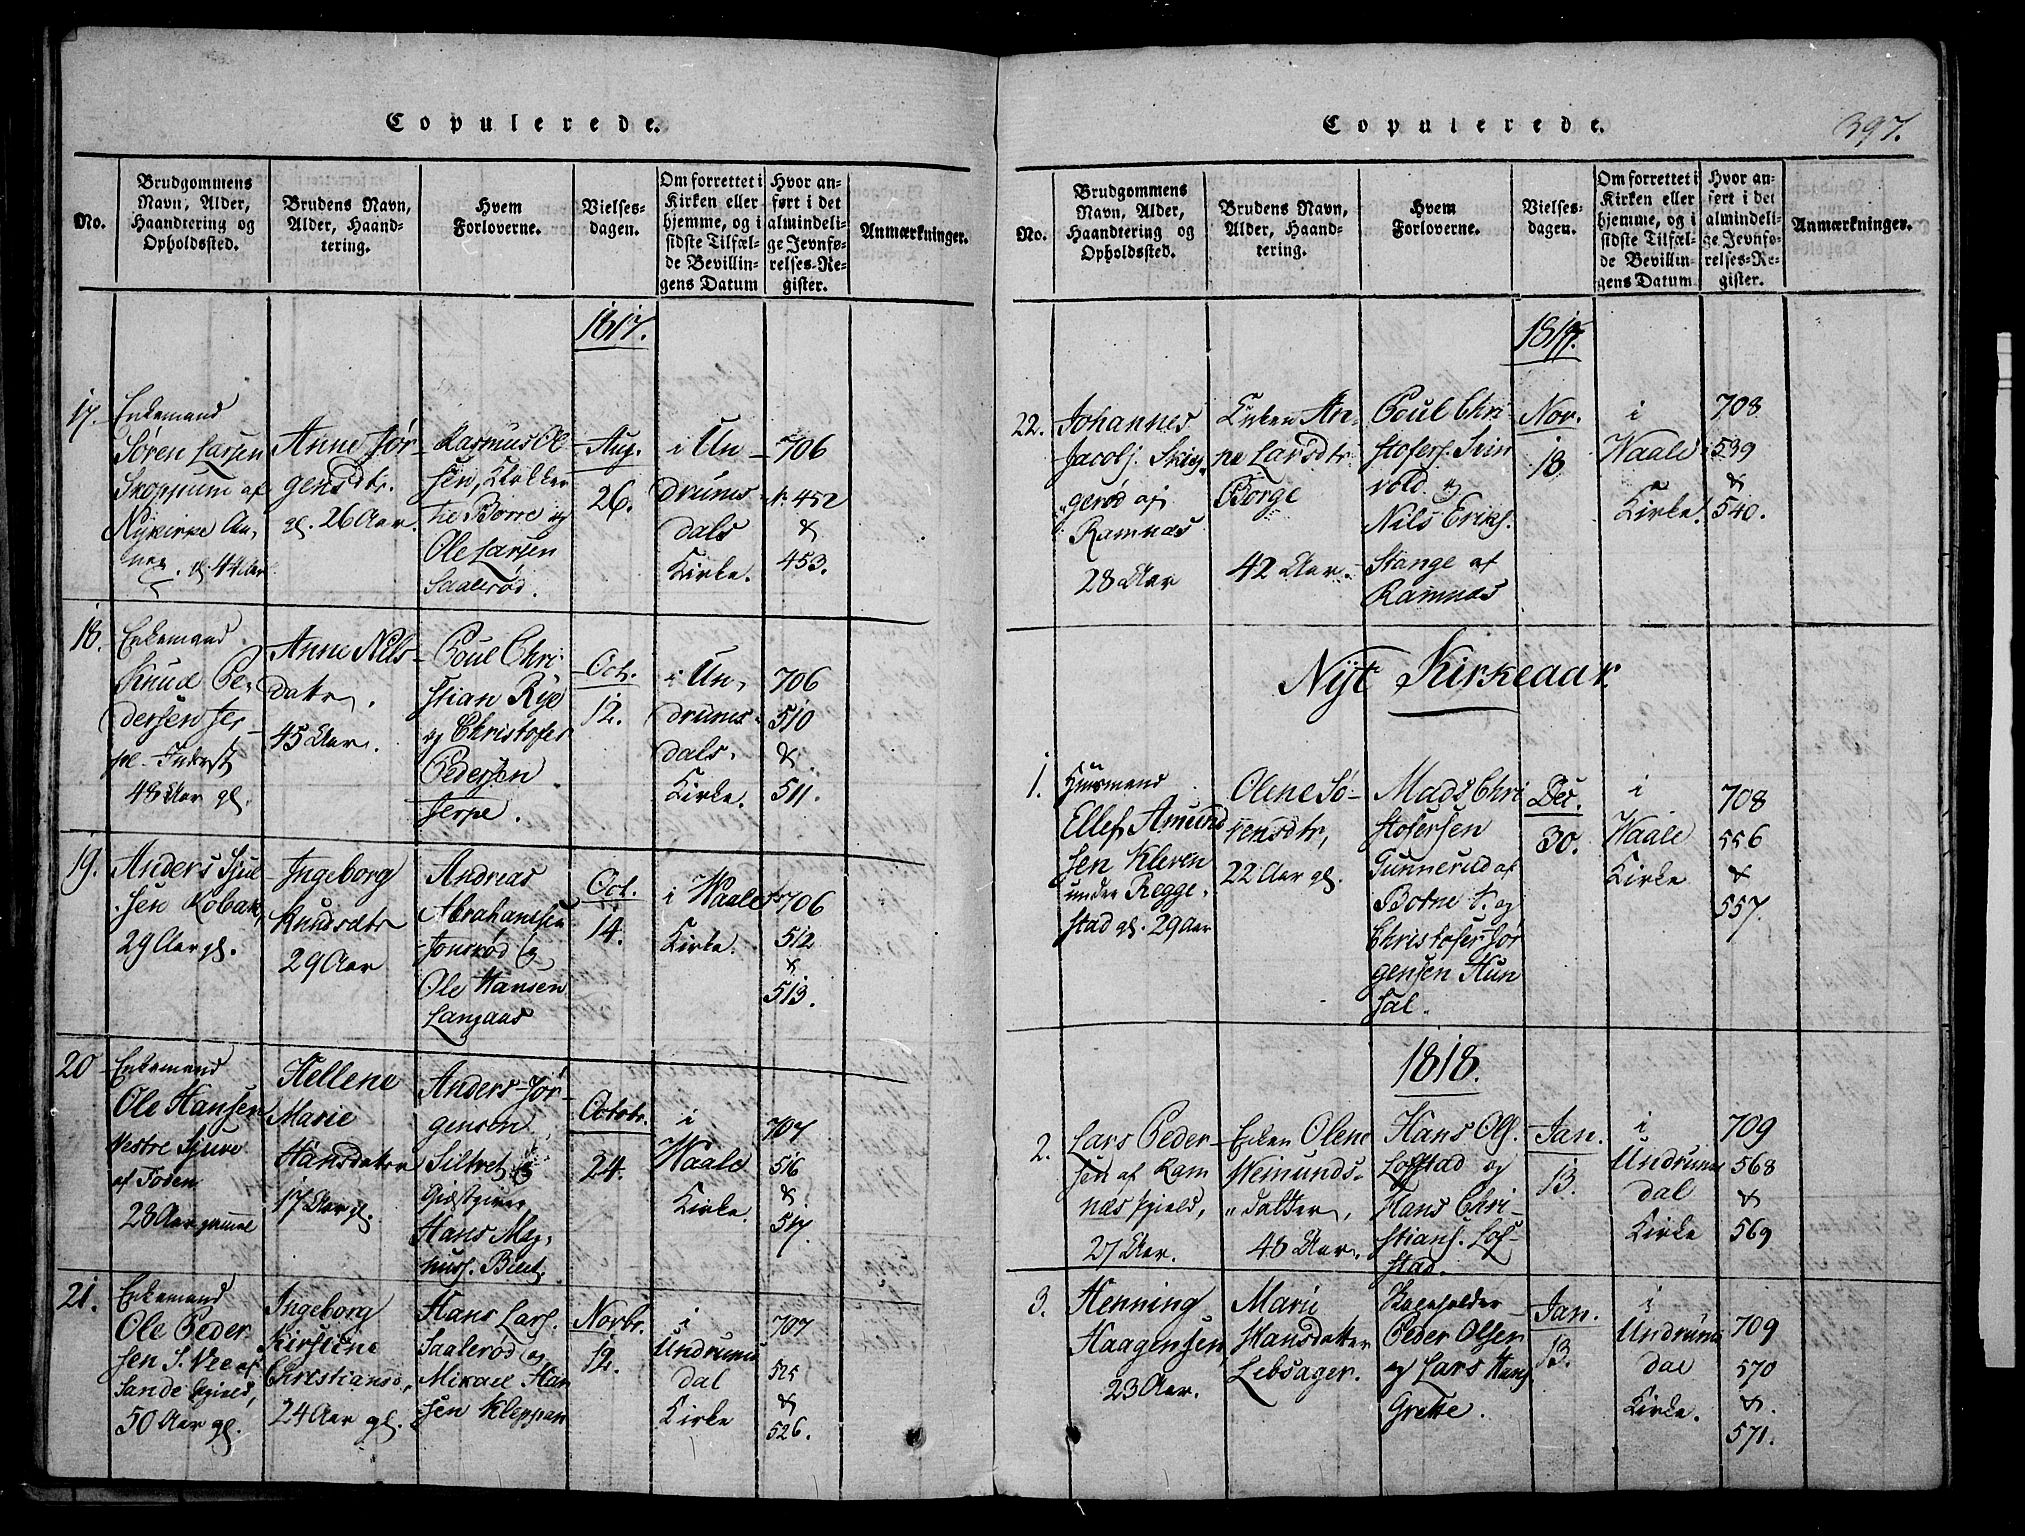 Copulerede.
No.
Brudgommens Navn, Alder, Haandtering og Opholdssted.
Brudens Navn, Alder, Haandtering.
Hvem Forloverne.
Vielsesdagen.
Om forrettet i Kirken eller hjemme, og i sidste Tilfælde Bevillingens Datum
Hvor anført i det almindelige Jevnførelses-Register.
Anmærkninger.
1817.
17.
Enkemand
Søren Larsen
Skoppum af
Nykirke An-
nex. gl. 44 Aar
Anne Jør-
gensdtr.
gl. 26 Aar.
Rasmus Ol
sen, Klokker
til Borre og
Ole Larsen
Saalerød.
Aug.
26.
i Un-
drums
dals
Kirke.
706
n. 452
&
453.
18.
Enkemand
Knud Pe-
dersen Jer-
pe - Inderst
48 Aar gl.
Anne Nils-
datr.
45 Aar.
Poul Chri
stian Rye
og Christofer
Pedersen
Jerpe.
Oct.
12.
i Un-
drums-
dals.
Kirke.
706
510
&
511.
19.
Anders Sjul
sen Kobak,
29 Aar gl.
Ingeborg
Knudsdtr
29 Aar
Andreas
Abrahamsen
Jonsrød og
Ole Hansen
Langaas
Oct.
14.
i Waale
Kirke.
706
512
&
513.
20
Enkemand
Ole Hansen
Vestre Sjure
af Foden
28 Aar gammel
Hellene
Marie
Hansdatter
17 Aar gl.
Anders Jør-
gensen
Siltvet og
Giæstgiver
Hans Mag-
nuss. Bient.
Octobr.
24.
i
Waale
Kirke.
707
516
&
517.
21.
Enkemand
Ole Peder
sen S. Vee af
Sande Gield,
50 Aar gl.
Ingeborg
Kirstine
Christiansd.,
24 Aar gl.
Hans Lars.
Saalerød og
Mikael Han
sen Kleppan
Novbr.
12.
i
Undrums
dal
Kirke
707
525
&
526.
Copulerede.
397.
No.
Brudgommens Navn, Alder, Haandtering og Opholdssted.
Brudens Navn, Alder, Haandtering.
Hvem Forloverne.
Vielsesdagen.
Om forrettet i Kirken eller hjemme, og i sidste Tilfælde Bevillingens Datum
Hvor anført i det almindelige Jevnførelses-Register.
Anmærkninger.
1817.
22.
Johannes
Jacobs. Skig-
gerød af
Ramnæs
28 Aar
Enken An-
ne Larsdtr.
Borge
42 Aar.
Poul Chri
stofers. Svin
vold og
Nils Eriks.
Stange af
Ramnæs
Nov.
18
i
Waale
Kirke.
708
539
&
540.
Nyt Kirkeaar.
1.
Huusmand
Ellef Amund
sen Kleven
under Regge-
stad gl. 29 Aar
Olene Sø-
rensdtr,
22 Aar gl.
Mads Chri
stofersen
Gunnerud af
Botne S. og
Christofer Jør
gensen Hun
sal.
Dec.
30.
i
Waale
Kirke
708
556
&
557.
1818.
2.
Lars Peder-
sen af Ram
næs Gield,
27 Aar.
Enken Olene
Weimunds-
datter,
48 Aar.
Hans Ols.
Lofstad og
Hans Chri-
stians. Lof-
stad.
Jan.
13.
i
Undrums
dal
Kirke
709
568
&
569
3.
Henning
Haagensen,
23 Aar.
Marie
Hansdatter
Lebsager.
Peder Olsen
og Lars Hans.
Grette.
Jan.
13.
i
Undrums
dal
Kirke.
709
570
&.
571.